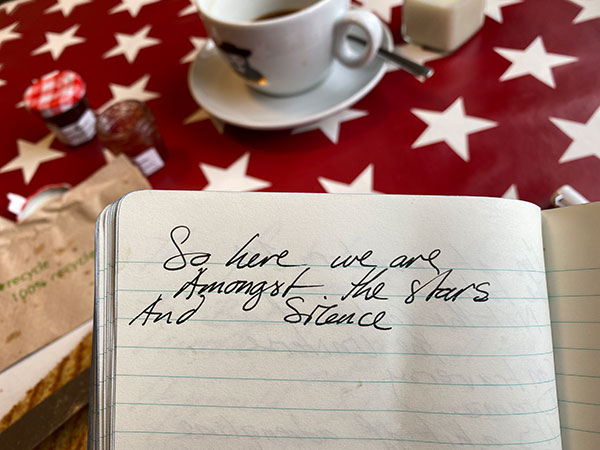 So here we are
Amongst the stars
And Silence
recycle
100% recycle